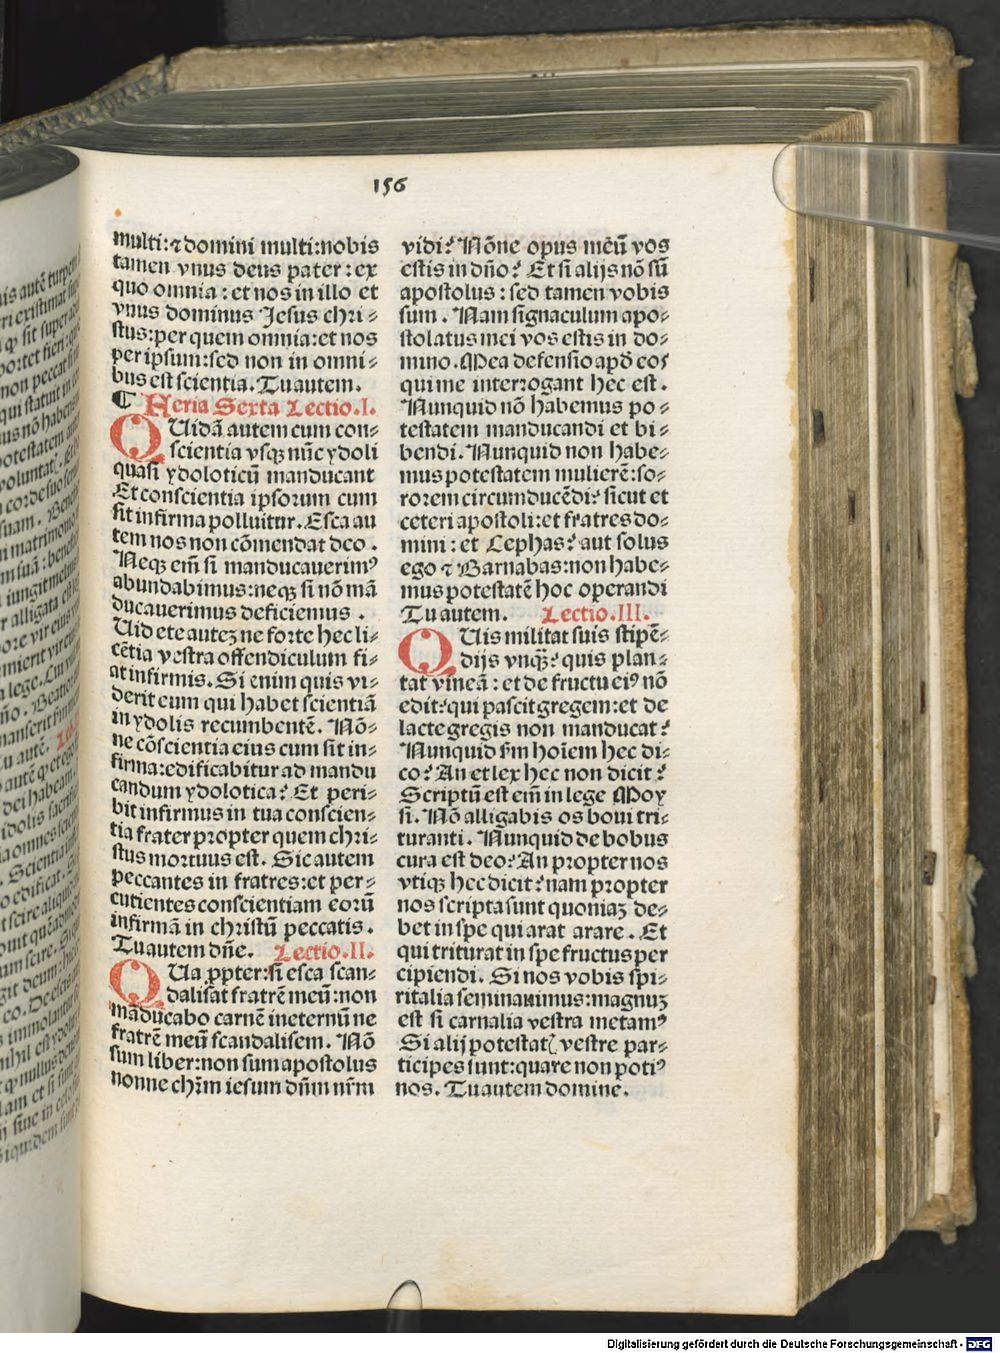 156
multi:⁊domini multi:nobis
tamen vnus deus pater:ex
quo omnia:et nos in illo et
vnus dominus Jesus chri⸗
stus:per quem omnia:et nos
per ipsum:sed non in omni⸗
bus est scientia. Tu autem.
¶ Feria Sexta Lectio.I.
QUidā autem cum con⸗
scientia vsqȝ nūc ydoli
quasi ydoloticū manducant
Et conscientia ipsorum cum
sit infirma polluitur. Esca au
tem nos non cōmendat deo.
Neqȝ em̄ si manducauerimꝰ
abundabimus:neqȝ si nō mā
ducauerimus deficiemus.
Uidete auteȝ ne forte hec li⸗
cētia vestra offendiculum fi⸗
at infirmis. Si enim quis vi⸗
derit eum qui habet scientiā
in ydolis recumbentē. Nō⸗
ne cōscientia eius cum sit in⸗
firma:edificabitur ad mandu
candum ydolotica? Et peri⸗
bit infirmus in tua conscien⸗
tia frater propter quem chri⸗
stus mortuus est. Sic autem
peccantes in fratres:et per⸗
cutientes conscientiam eorū
infirmā in christū peccatis.
Tu autem dn̄e. Lectio.II.
QUa ꝓpter:si esca scan⸗
dalisat fratrē meū:non
māducabo carnē in eternū ne
fratrē meū scandalisem. Nō
sum liber:non sum apostolus
nonne chr̄m iesum dn̄m nr̄m
vidi? Nōne opus meū vos
estis in dn̄o? Et si alijs nō sū
apostolus:sed tamen vobis
sum. Nam signaculum apo⸗
stolatus mei vos estis in do⸗
mino. Mea defensio apd̄ eos
qui me interrogant hec est.
Nunquid nō habemus po⸗
testatem manducandi et bi⸗
bendi. Nunquid non habe⸗
mus potestatem mulierē:so⸗
rorem circumducēdi? sicut et
ceteri apostoli:et fratres do⸗
mini:et Cephas? aut solus
ego ⁊ Barnabas:non habe⸗
mus potestatē hoc operandi
Tu autem. Lectio.III.
QUis militat suis stipē⸗
dijs vnqȝ̄? quis plan⸗
tat vineā:et de fructu eiꝰ nō
edit?qui pascit gregem:et de
lacte gregis non manducat?
Nunquid sm̄ hoīem hec di⸗
co? An et lex hec non dicit?
Scriptū est em̄ in lege Moy
si. Nō alligabis os boui tri⸗
turanti. Nunquid de bobus
cura est deo? An propter nos
vtiqȝ hec dicit?nam propter
nos scripta sunt quoniaȝ de⸗
bet in spe qui arat arare. Et
qui triturat in spe fructus per
cipiendi. Si nos vobis spi⸗
ritalia seminauimus:magnuȝ
est si carnalia vestra metamꝰ
Si alij potestatꝭ vestre par⸗
ticipes sunt:quare non potiꝰ
nos. Tu autem domine.
Digitalisierung gefördert durch die Deutsche Forschungsgemeinschaft - DFG